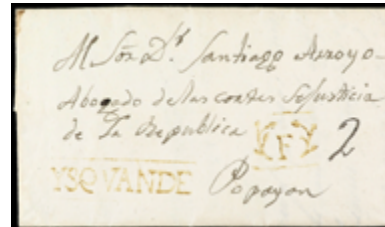 Al Sõr. Dr. Santiago Arroyo
Abogado de las cortes de Justicia
de la Republica F 2
YSQVANDE Popayan